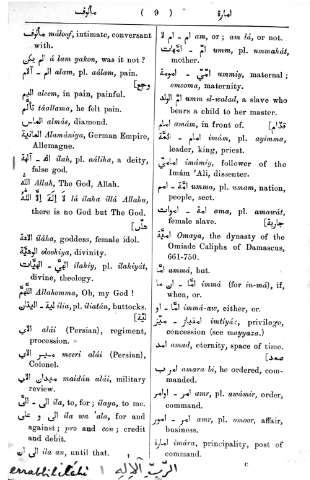 مألوف ( 9 ) امارة
مألوف máloof, intimate, conversant
with.
الم يكن á lam yakon, was it not?
الم — آلام alam, pl. aálam, pain.
[وجع]
اليم aleem, in pain, painful.
تألّم táallama, he felt pain.
الماس almás, diamond.
المانية Alamániya, German Empire,
Allemagne.
اله — آلهة iláh, pl. aáliha, a deity,
false god.
الله Allah, The God, Allah.
لا اله الا الله lá iláha illá Allahu,
there is no God but The God.
الاهة iláha, goddess, female idol.
الوهيّة oloohiya, divinity.
الهي — الهيّات ilahiy, pl. ilahiyát,
divine, theology.
اللهمّ Allahomma, Oh, my God!
الية — اليتان ilia, pl. iliatan, buttocks.
[لية]
الاي alái (Persian), regiment,
procession.
مير الاي meeri alái (Persian),
Colonel.
ميدان الاي maidán alái, military
review.
الى ila, to, for; ilaya, to me.
الى و على ila wa 'ala, for and
against; pro and con; credit
and debit.
الى ان ila an, until that.
ام — ام لا am, or; am lá, or not.
ام — امّهات umm, pl. ummahát,
mother.
امّي — امومة ummiy, maternal;
omooma, maternity.
ام الولد umm el-walad, a slave who
bears a child to her master.
امام amám, in front of. [قدّام]
امام — ائمّة imám, pl. ayimma,
leader, king, priest.
امامي imámiy, follower of the
Imám 'Ali, dissenter.
امّة — امم umma, pl. umam, nation,
people, sect.
امة — اموات ama, pl. amawát,
female slave. [جارية]
اميّة Omaya, the dynasty of the
Omiade Caliphs of Damascus,
661-750.
امّا ammá, but.
امّا — ان ما immá (for in-má), if,
when, or.
امّا او immá-aw, either, or.
امتياز imtiyáz, privilege,
concession (see mayyaza.)
امد amad, eternity, space of time.
امر ب amara bi, he ordered, com-
manded.
امر — اوامر amr, pl. awámir, order,
command.
امر — امور amr, pl. umoor, affair,
business.
امارة imára, principality, post of
command.
c
errabbililahi الربّ الاله